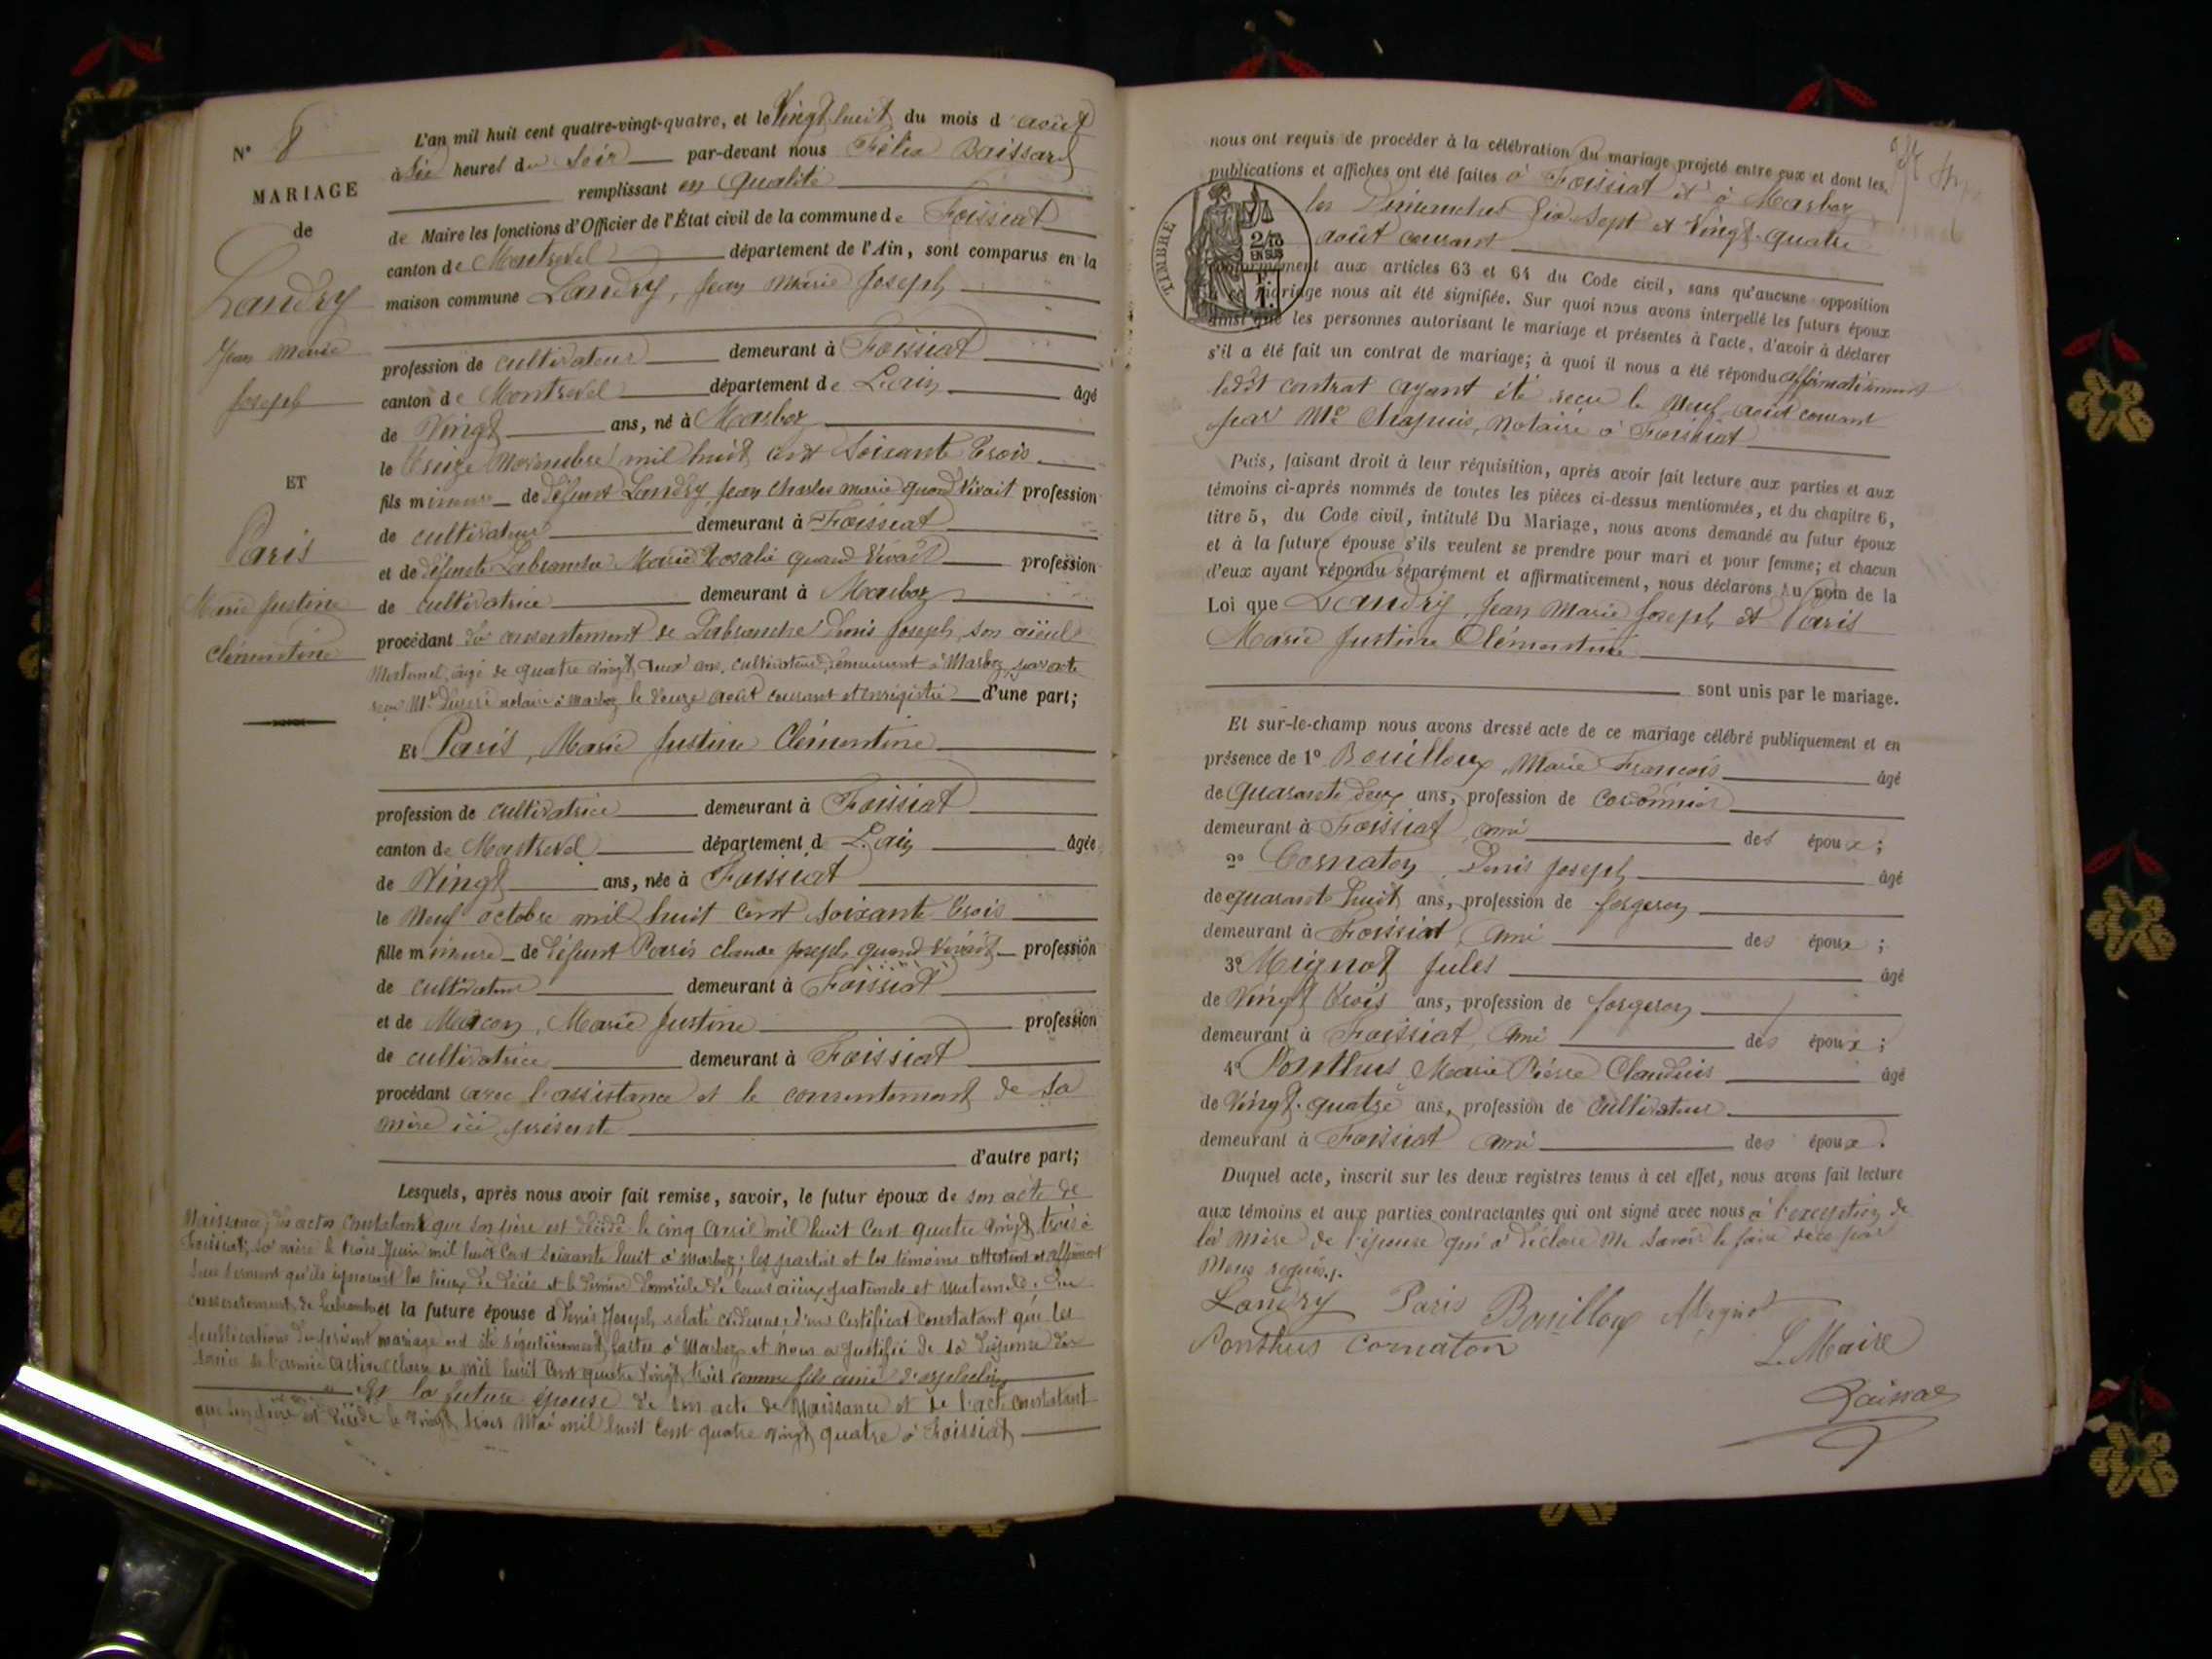 N° 8
MARIAGE
de
Landry
Jean Marie
Joseph
ET
Paris
Marie Justine
Clémentine
L'an mil huit cent quatre-vingt-quatre, et le Vingt huit du mois d'août
à Six heures du Soir par-devant nous Félix
remplissant en qualité
de Maire les fonctions d'Officier de l'État civil de la commune de Foissiat
canton de Montrevel département de l'Ain, sont comparus en la
maison commune Landry, Jean Marie Joseph
profession de cultivateur demeurant à Foissiat
canton de Montrevel département de L'ain âgé
de Vingt ans, né à Marboz
le Treize Novembre mil huit cent Soixante trois
fils mineur de défunt Landry Jean Charles Marie quand vivait profession
de cultivateur demeurant à Foissiat
et de défunte Labranche Marie Rosalie quand Vivait profession
de cultivatrice demeurant à Marboz
procédant du consentement de Labranche Denis Joseph, son aïeul
Maternel, âgé de quatre vingt deux ans, cultivateur, demeurant à Marboz, par acte
reçu Me notaire à Marboz le douze août courant et enregistré d'une part;
Et Paris, Marie Justine Clémentine
profession de cultivatrice demeurant à Foissiat
canton de Montrevel département d L'ain âgée
de Vingt ans, née à Foissiat
le Neuf octobre mil huit cent soixante trois
fille mineure de défunt Paris claude Joseph quand Vivait profession
de cultivateur demeurant à Foissiat
et de Mâcon, Marie Justine profession
de cultivatrice demeurant à Foissiat
procédant avec l'assistance et le consentement de sa
mère ici présente
d'autre part;
Lesquels, après nous avoir fait remise, savoir, le futur époux de son acte de
Naissance, des actes constatant que son père est décédé le cinq avril mil huit cent quatre vingt trois à
Foissiat, sa mère le trois Juin mil huit cent soixante huit à Marboz; les parties et les témoins attestent et affirment
sous serment qu'ils ignorent les lieux de décès et le dernier domicile de leurs aïeux paternels et maternels. Du
consentement de Labranche et la future épouse d Denis Joseph, relaté ci-dessus; d'un certificat constatant que les
publications du présent mariage ont été régulièrement faites à Marboz et nous a justifié de sa dispense du
service de l'armée active classe de mil huit cent quatre vingt trois comme fils aîné d'orphelins
Et la future épouse de son acte de Naissance et de l'acte constatant
que son père est décédé le vingt trois Mai mil huit cent quatre vingt quatre à Foissiat
nous ont requis de procéder à la célébration du mariage projeté entre eux et dont les
publications et affiches ont été faites à Foissiat et à Marboz
les Dimanches Dix-Sept et Vingt-quatre
août courant
TIMBRE
2/10
EN SUS
F.
1.
conformément aux articles 63 et 64 du Code civil, sans qu'aucune opposition
à ce mariage nous ait été signifiée. Sur quoi nous avons interpellé les futurs époux
ainsi que les personnes autorisant le mariage et présentes à l'acte, d'avoir à déclarer
s'il a été fait un contrat de mariage; à quoi il nous a été répondu affirmativement
ledit contrat ayant été reçu le Neuf août courant
par Me Chapuis, Notaire à Foissiat
Puis, faisant droit à leur réquisition, après avoir fait lecture aux parties et aux
témoins ci-après nommés de toutes les pièces ci-dessus mentionnées, et du chapitre 6,
titre 5, du Code civil, intitulé Du Mariage, nous avons demandé au futur époux
et à la future épouse s'ils veulent se prendre pour mari et pour femme; et chacun
d'eux ayant répondu séparément et affirmativement, nous déclarons au nom de la
Loi que Landry, Jean Marie Joseph et Paris
Marie Justine Clémentine
sont unis par le mariage.
Et sur-le-champ nous avons dressé acte de ce mariage célébré publiquement et en
présence de 1° Bouilloux, Marie François âgé
de quarante deux ans, profession de cordonnier
demeurant à Foissiat, ami des époux;
2° Cornaton, Denis Joseph âgé
de quarante huit ans, profession de forgeron
demeurant à Foissiat, ami des époux;
3° Mignot Jules âgé
de Vingt trois ans, profession de forgeron
demeurant à Foissiat, ami des époux;
4° Ponthus Marie Pierre Claudius âgé
de Vingt-quatre ans, profession de cultivateur
demeurant à Foissiat ami des époux.
Duquel acte, inscrit sur les deux registres tenus à cet effet, nous avons fait lecture
aux témoins et aux parties contractantes qui ont signé avec nous à l'exception de
la mère de l'épouse qui a déclaré ne savoir le faire de ce par
Nous requis.
Landry Paris Bouilloux Mignot
Ponthus Cornaton
Le Maire